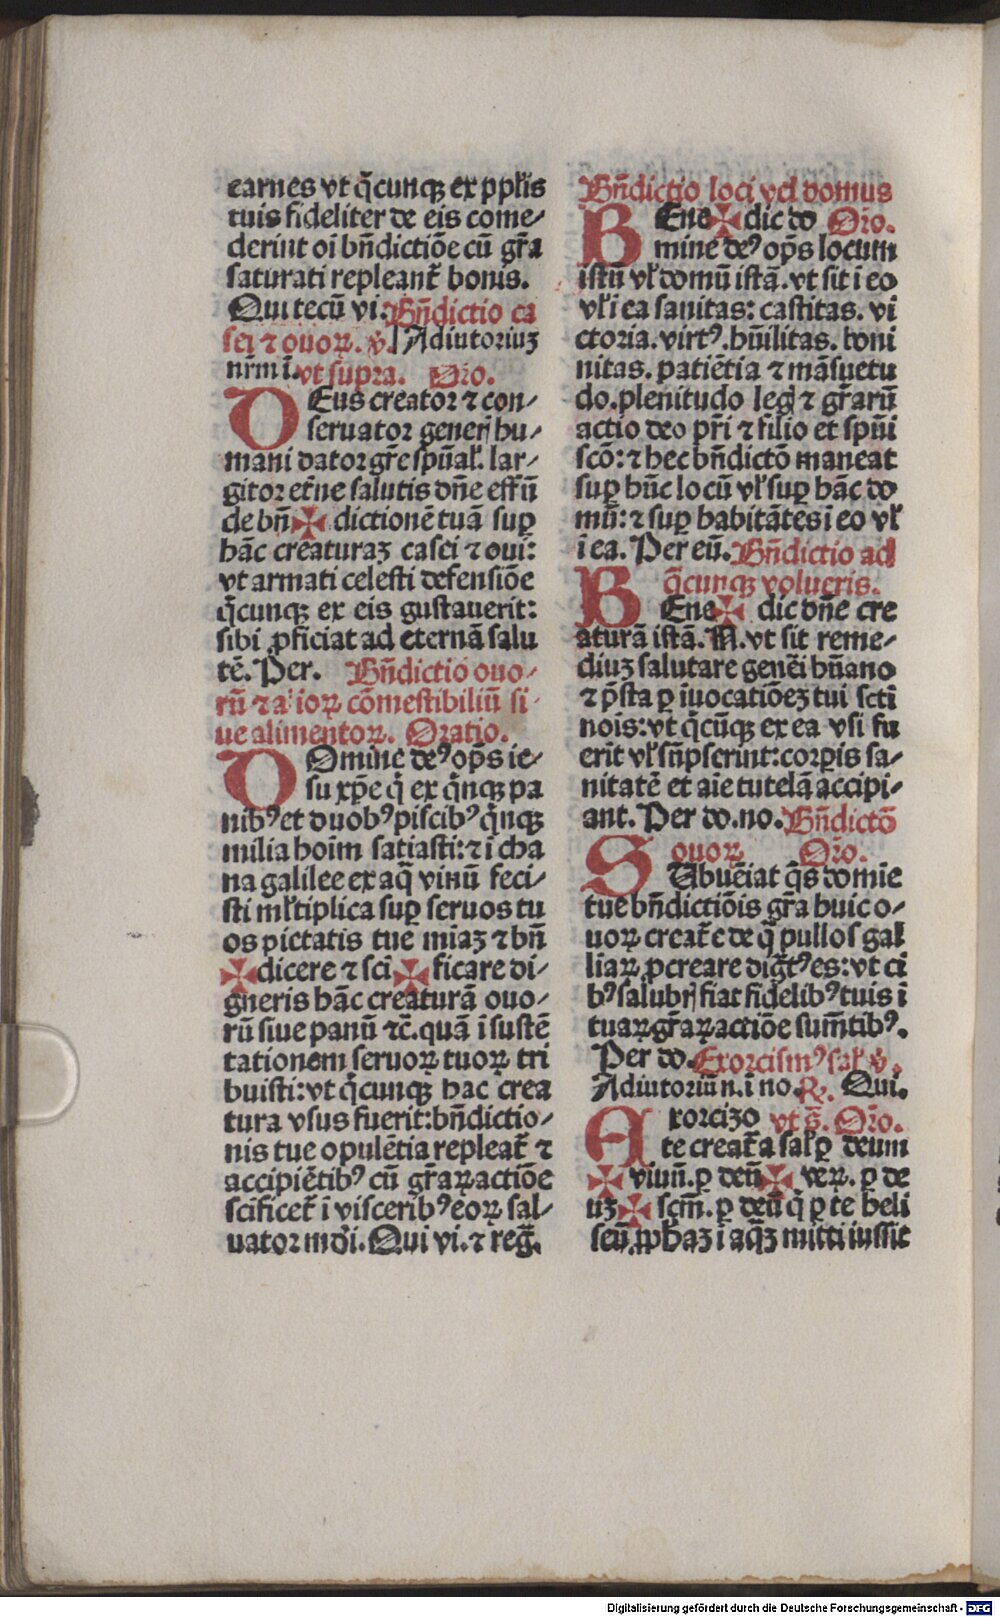 carnes vt q̃cunqꝫ ex ppl̃is
tuis fideliter de eis come⸗
derint oĩ bñdictiõe cũ gr̃a
saturati repleant̃ bonis.
Qui tecũ vi. Bñdictio ca
sei ⁊ ouoꝝ. ℣. Adiutoriuꝫ
nr̃m ĩ. vt supra. Or̃o.
DEus creator ⁊ con⸗
seruator generꝭ hu⸗
mani dator gr̃e spũal̃. lar⸗
gitor et̃ne salutis dñe effũ
de bñ✠dictionẽ tuã suꝑ
hãc creaturaꝫ casei ⁊ oui:
vt armati celesti defensiõe
q̃cunqꝫ ex eis gustauerit:
sibi ꝓficiat ad eternã salu
tẽ. Per. Bñdictio ouo⸗
rũ ⁊ alioꝝ cõmestibiliũ si⸗
ue alimentoꝝ. Oratio.
DOmine deꝰ op̃s ie⸗
su xp̃e q̃ ex q̃nqꝫ pa
nibꝰ et duobꝰ piscibꝰ q̃nqꝫ
milia hoĩm satiasti: ⁊ ĩ cha
na galilee ex aq̃ vinũ feci⸗
sti ml̃tiplica suꝑ seruos tu
os pietatis tue mĩaꝫ ⁊ bñ
✠dicere ⁊ sci✠ficare di⸗
gneris hãc creaturã ouo⸗
rũ siue panũ ⁊c̃. quã ĩ sustẽ
tationem seruoꝝ tuoꝝ tri
buisti: vt q̃cunqꝫ hac crea
tura vsus fuerit: bñdictio⸗
nis tue opulẽtia repleat̃ ⁊
accipiẽtibꝰ cũ gr̃aꝝ actiõe
scificet̃ ĩ visceribꝰ eoꝝ sal⸗
uator mdĩ. Qui vi. ⁊ reg̃.
Bñdictio loci vel domus
BEne✠dic do Or̃o.
mine deꝰ op̃s locum
istũ vl̃ domũ istã. vt sit ĩ eo
vl̃ ĩ ea sanitas: castitas. vi
ctoria. virtꝰ. hũilitas. boni
nitas. patiẽtia ⁊ mãsuetu
do. plenitudo legꝭ ⁊ gr̃arũ
actio deo pr̃i ⁊ filio et spũi
scõ: ⁊ hec bñdictõ maneat
suꝑ hũc locũ vl̃ suꝑ hãc do
mũ: ⁊ suꝑ habitãtes ĩ eo vl̃
ĩ ea. Per eũ. Bñdictio ad
q̃cunqꝫ volueris.
BEne✠dic dñe cre
aturã istã. N. vt sit reme⸗
diuꝫ salutare genẽi hũano
⁊ p̃sta ꝑ ĩuocatiõeꝫ tui scti
nois: vt q̃cũqꝫ ex ea vsi fu
erit vl̃ sũpserint: corꝑis sa⸗
nitatẽ et aĩe tutelã accipi⸗
ant. Per do. no. Bñdictõ
ouoꝝ Or̃o.
SUbuẽiat q̃s domĩe
tue bñdictiõis gr̃a huic o⸗
uoꝝ creat̃e de q̃ pullos gal
liaꝝ ꝓcreare dig̃tꝰ es: vt ci
bꝰ salubrꝭ fiat fidelibꝰ tuis ĩ
tuaꝝ gr̃aꝝ actiõe sum̃tibꝰ.
Per do. Exorcismꝰ sal̃ ℣.
Adiutoriũ n. ĩ no. ℟. Qui.
Exorcizo vt s̃. Or̃o.
te creat̃a sal̃ ꝑ deum
✠ viuũ. ꝑ deũ✠ veꝝ. ꝑ de
uꝫ✠ scm̃. ꝑ deũ q̃ ꝑ te heli
seũ ꝓphaꝫ ĩ aq̃ꝫ mitti iussit
Digitalisierung gefördert durch die Deutsche Forschungsgemeinschaft - DFG